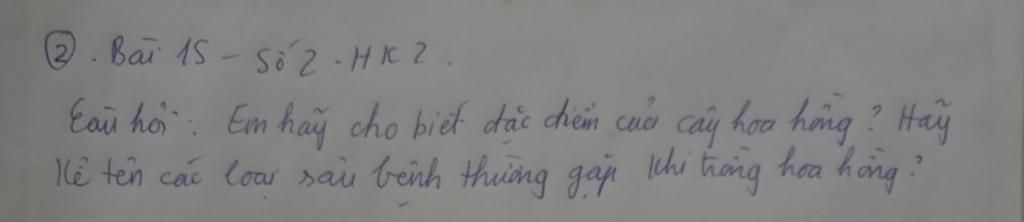 ② . Bài 15 - Số 2 - HK 2 .
Câu hỏi : Em hãy cho biết đặc điểm của cây hoa hồng ? Hãy
kể tên các loại sâu bệnh thường gặp khi trồng hoa hồng ?